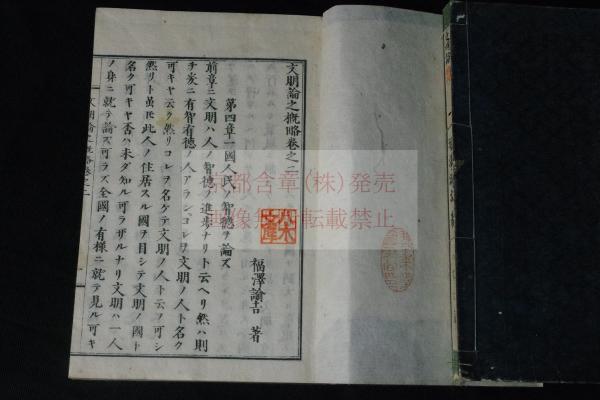 文明論之概略巻之二
福澤諭吉 著
第四章 一國人民ノ智德ヲ論ズ
前章ニ文明ハ人ノ智德ノ進歩ナリト云ヘリ然ハ則
チ爰ニ有智有德ノ人アランコレヲ文明ノ人ト名ク
可キヤ云ク然リコレヲ名ケテ文明ノ人ト云フ可シ
然リト雖𪜈此人ノ住居スル國ヲ目シテ文明ノ國ト
名ク可キヤ否ハ未ダ知ル可ラザルナリ文明ハ一人
ノ身ニ就テ論ズ可ラズ全國ノ有様ニ就テ見ル可キ
文明論之概略巻之二
京都含章(株)発売
画像 転載禁止